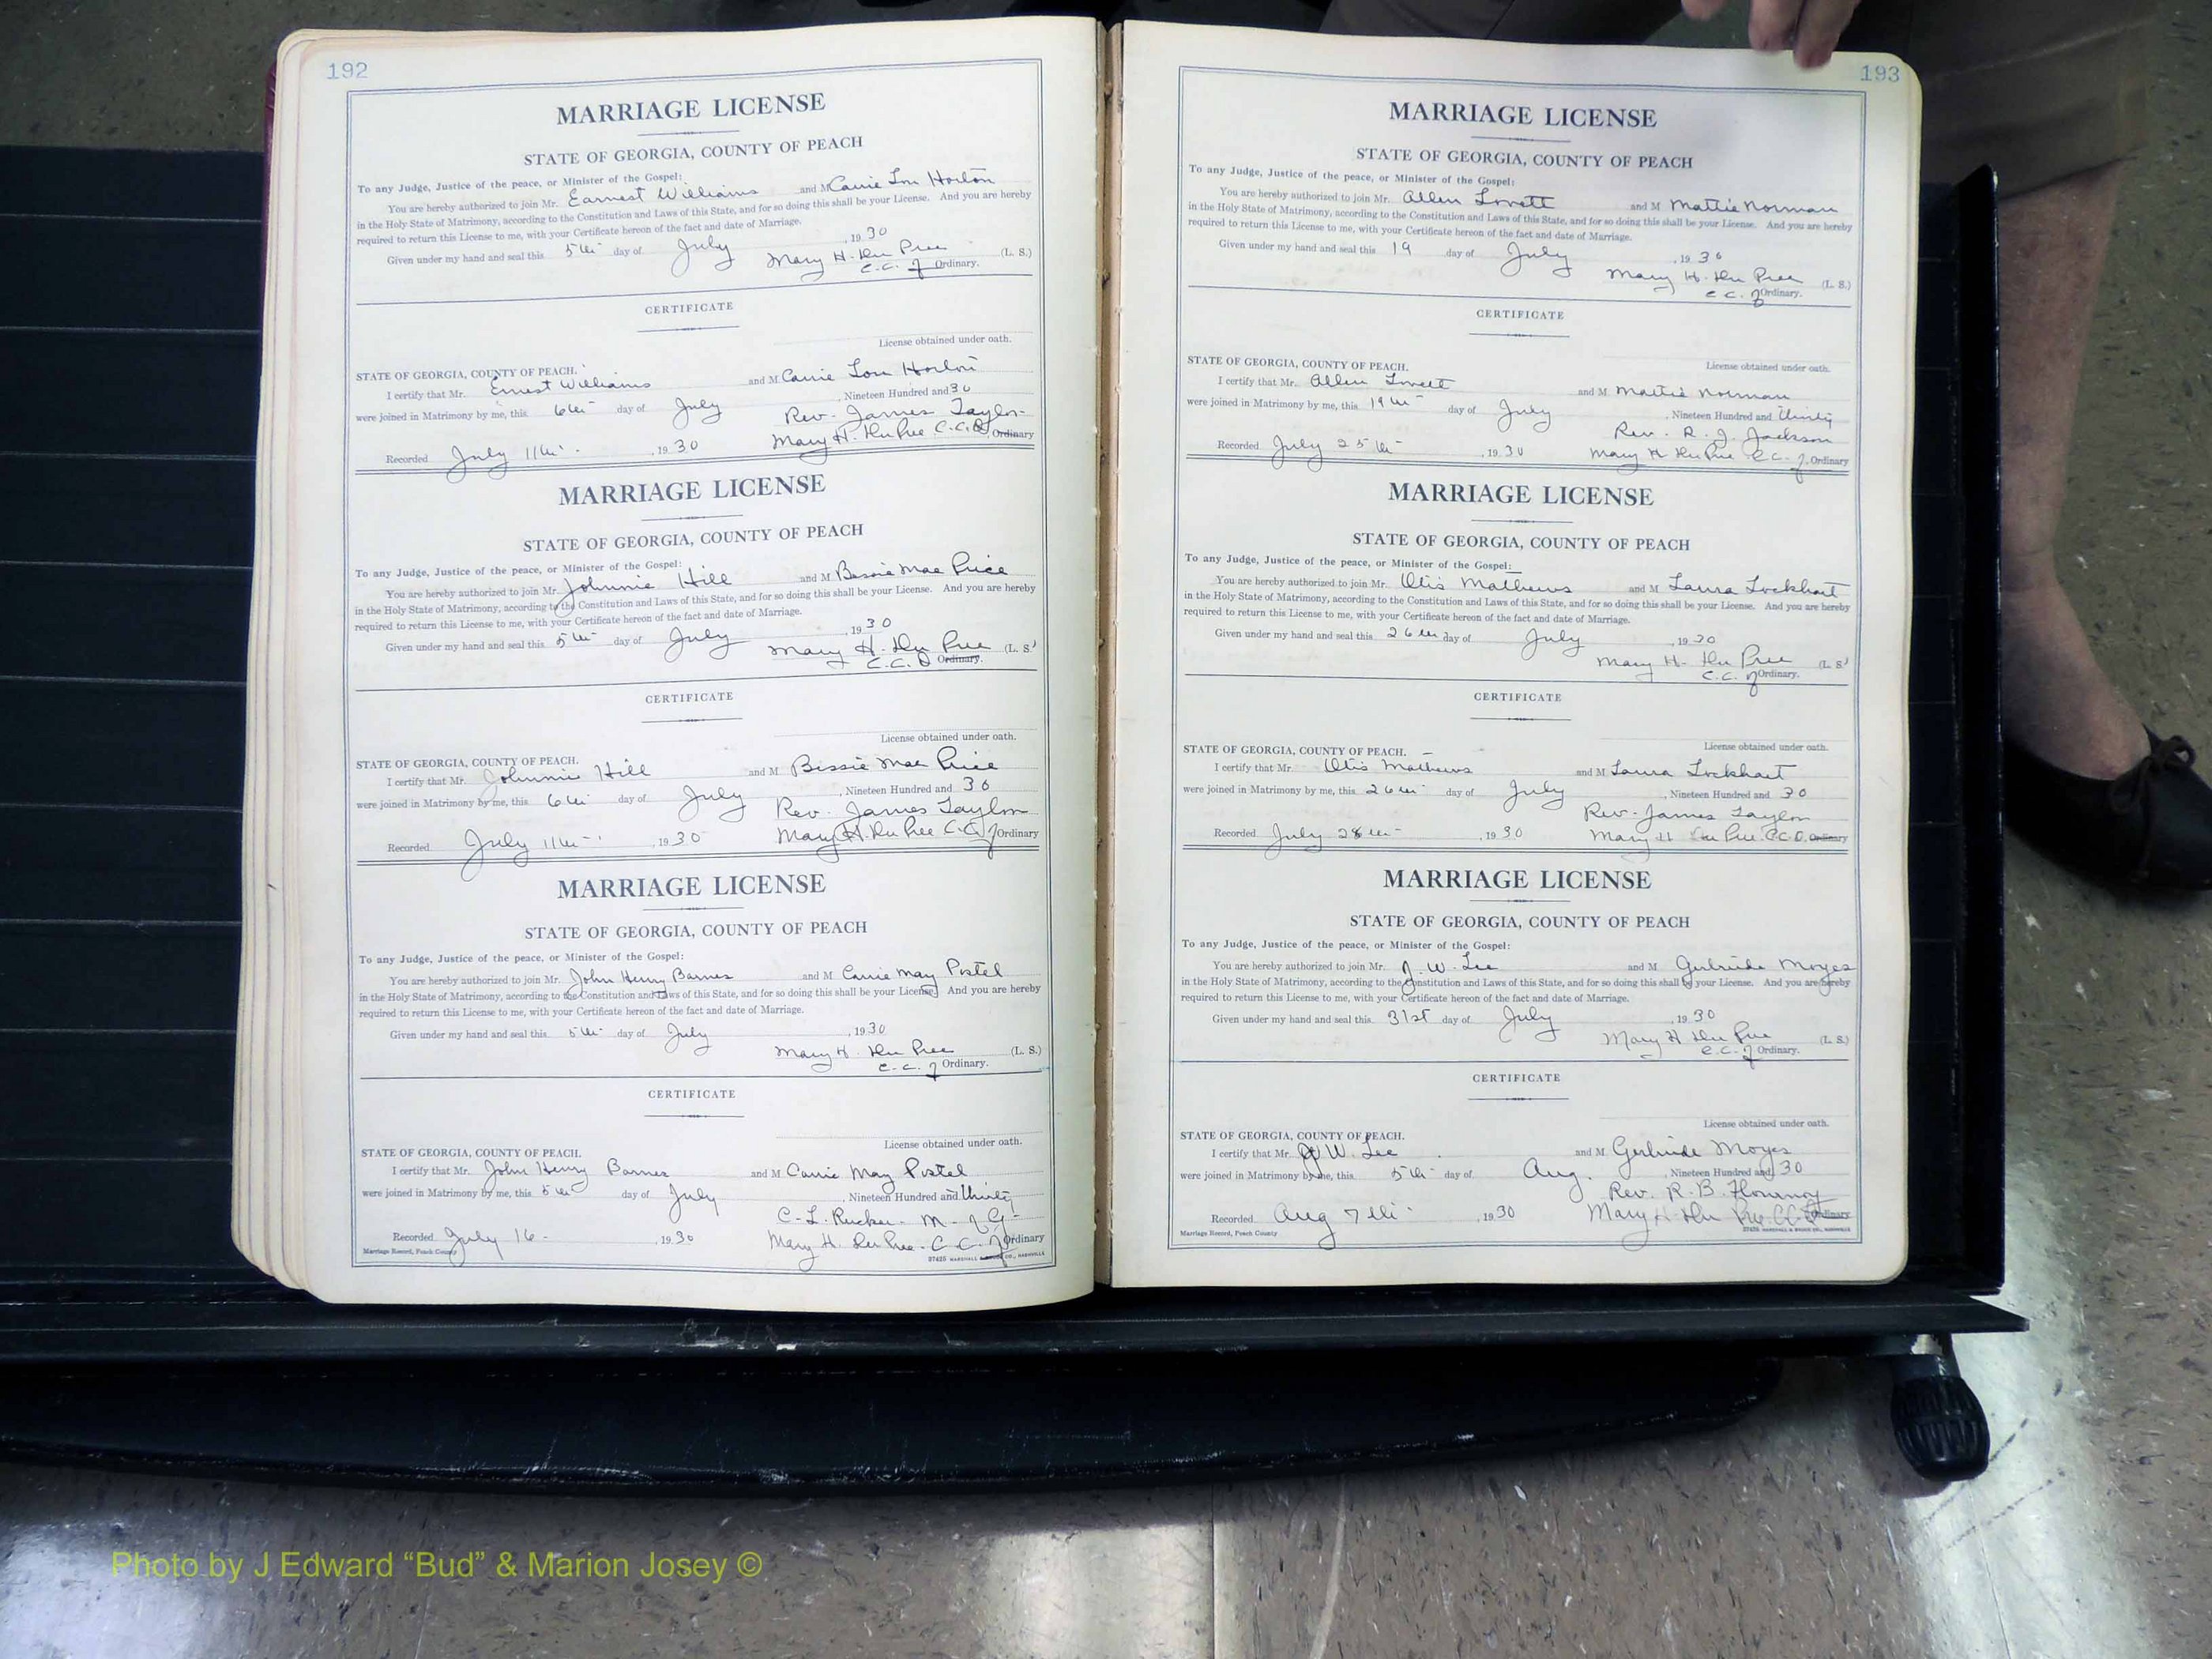 192
MARRIAGE LICENSE
STATE OF GEORGIA, COUNTY OF PEACH
To any Judge, Justice of the peace, or Minister of the Gospel:
You are hereby authorized to join Mr. Earnest Williams and M Carrie Lou Horton
in the Holy State of Matrimony, according to the Constitution and Laws of this State, and for so doing this shall be your License. And you are hereby
required to return this License to me, with your Certificate hereon of the fact and date of Marriage.
Given under my hand and seal this 5th day of July, 1930
Mary H. Du Pree (L. S.)
C.C.O Ordinary.
CERTIFICATE
License obtained under oath.
STATE OF GEORGIA, COUNTY OF PEACH.
I certify that Mr. Ernest Williams and M Carrie Lou Horton
were joined in Matrimony by me, this 6th day of July, Nineteen Hundred and 30
Rev. James Taylor
Recorded July 11th, 1930 Mary H. Du Pree C.C.O Ordinary
MARRIAGE LICENSE
STATE OF GEORGIA, COUNTY OF PEACH
To any Judge, Justice of the peace, or Minister of the Gospel:
You are hereby authorized to join Mr. Johnnie Hill and M Bessie Mae Price
in the Holy State of Matrimony, according to the Constitution and Laws of this State, and for so doing this shall be your License. And you are hereby
required to return this License to me, with your Certificate hereon of the fact and date of Marriage.
Given under my hand and seal this 5th day of July, 1930
Mary H. Du Pree (L. S.)
C.C.O Ordinary.
CERTIFICATE
License obtained under oath.
STATE OF GEORGIA, COUNTY OF PEACH.
I certify that Mr. Johnnie Hill and M Bessie Mae Price
were joined in Matrimony by me, this 6th day of July, Nineteen Hundred and 30
Rev. James Taylor
Recorded July 11th, 1930 Mary H. Du Pree C.C.O Ordinary
MARRIAGE LICENSE
STATE OF GEORGIA, COUNTY OF PEACH
To any Judge, Justice of the peace, or Minister of the Gospel:
You are hereby authorized to join Mr. John Henry Barnes and M Carrie May Postel
in the Holy State of Matrimony, according to the Constitution and Laws of this State, and for so doing this shall be your License. And you are hereby
required to return this License to me, with your Certificate hereon of the fact and date of Marriage.
Given under my hand and seal this 5th day of July, 1930
Mary H. Du Pree (L. S.)
C.C.O Ordinary.
CERTIFICATE
License obtained under oath.
STATE OF GEORGIA, COUNTY OF PEACH.
I certify that Mr. John Henry Barnes and M Carrie May Postel
were joined in Matrimony by me, this 5th day of July, Nineteen Hundred and Thirty
C. L. Rucker. M. G.
Recorded July 16, 1930 Mary H. Du Pree. C.C.O Ordinary
Marriage Record, Peach County
193
MARRIAGE LICENSE
STATE OF GEORGIA, COUNTY OF PEACH
To any Judge, Justice of the peace, or Minister of the Gospel:
You are hereby authorized to join Mr. Allen Lovett and M Mattie Norman
in the Holy State of Matrimony, according to the Constitution and Laws of this State, and for so doing this shall be your License. And you are hereby
required to return this License to me, with your Certificate hereon of the fact and date of Marriage.
Given under my hand and seal this 19 day of July, 1930
Mary H. Du Pree (L. S.)
C.C.O Ordinary.
CERTIFICATE
License obtained under oath.
STATE OF GEORGIA, COUNTY OF PEACH.
I certify that Mr. Allen Lovett and M Mattie Norman
were joined in Matrimony by me, this 19th day of July, Nineteen Hundred and Thirty
Rev. R. J. Jackson
Recorded July 25th, 1930 Mary H Du Pree C.C.O Ordinary
MARRIAGE LICENSE
STATE OF GEORGIA, COUNTY OF PEACH
To any Judge, Justice of the peace, or Minister of the Gospel:
You are hereby authorized to join Mr. Otis Mathews and M Laura Lockhart
in the Holy State of Matrimony, according to the Constitution and Laws of this State, and for so doing this shall be your License. And you are hereby
required to return this License to me, with your Certificate hereon of the fact and date of Marriage.
Given under my hand and seal this 26th day of July, 1930
Mary H. Du Pree (L. S.)
C.C.O Ordinary.
CERTIFICATE
License obtained under oath.
STATE OF GEORGIA, COUNTY OF PEACH.
I certify that Mr. Otis Mathews and M Laura Lockhart
were joined in Matrimony by me, this 26th day of July, Nineteen Hundred and 30
Rev. James Taylor
Recorded July 28th, 1930 Mary H Du Pree C.C.O. Ordinary
MARRIAGE LICENSE
STATE OF GEORGIA, COUNTY OF PEACH
To any Judge, Justice of the peace, or Minister of the Gospel:
You are hereby authorized to join Mr. J. W. Lee and M Gertrude Moyes
in the Holy State of Matrimony, according to the Constitution and Laws of this State, and for so doing this shall be your License. And you are hereby
required to return this License to me, with your Certificate hereon of the fact and date of Marriage.
Given under my hand and seal this 31st day of July, 1930
Mary H Du Pree (L. S.)
C.C.O Ordinary.
CERTIFICATE
License obtained under oath.
STATE OF GEORGIA, COUNTY OF PEACH.
I certify that Mr. J W. Lee and M Gertrude Moyes
were joined in Matrimony by me, this 5th day of Aug., Nineteen Hundred and 30
Rev. R. B. Flournoy
Recorded Aug 7th, 1930 Mary H. Du Pree C.C.O Ordinary
Marriage Record, Peach County
Photo by J Edward “Bud” & Marion Josey ©